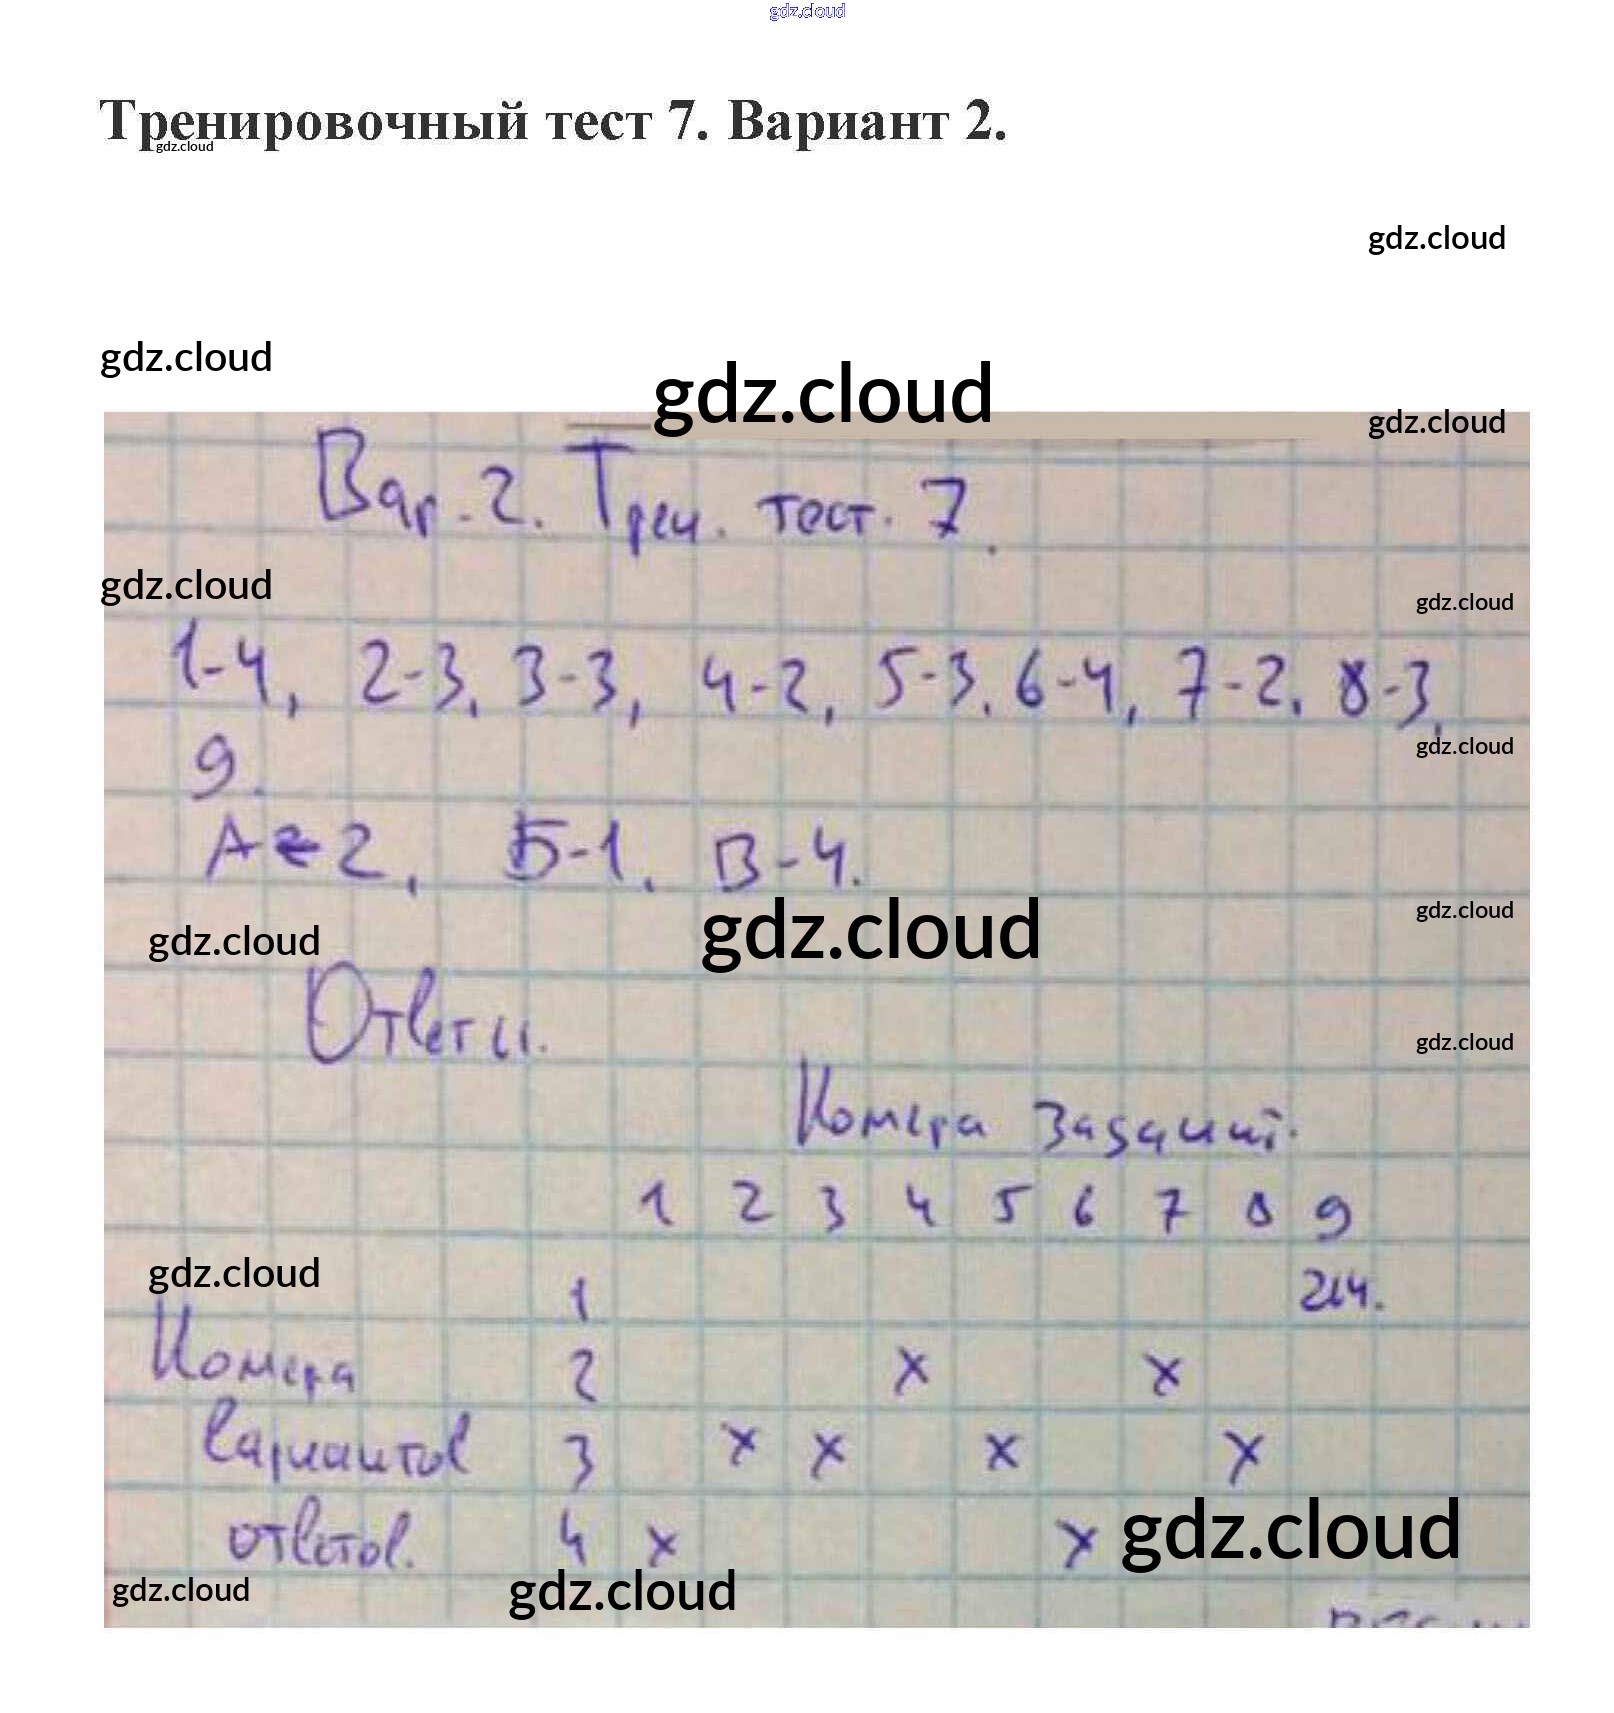 gdz.cloud
Тренировочный тест 7. Вариант 2.
gdz.cloud
gdz.cloud
gdz.cloud
gdz.cloud
gdz.cloud
Вар. 2. Трен. тест. 7.
gdz.cloud
gdz.cloud
1-4, 2-3, 3-3, 4-2, 5-3, 6-4, 7-2, 8-3,
gdz.cloud
9.
А-2, Б-1, В-4.
gdz.cloud
gdz.cloud
gdz.cloud
Ответы.
gdz.cloud
Номера заданий.
1 2 3 4 5 6 7 8 9
gdz.cloud
1 214.
Номера 2 х х
вариантов 3 х х х х
ответов. 4 х х
gdz.cloud
gdz.cloud
gdz.cloud